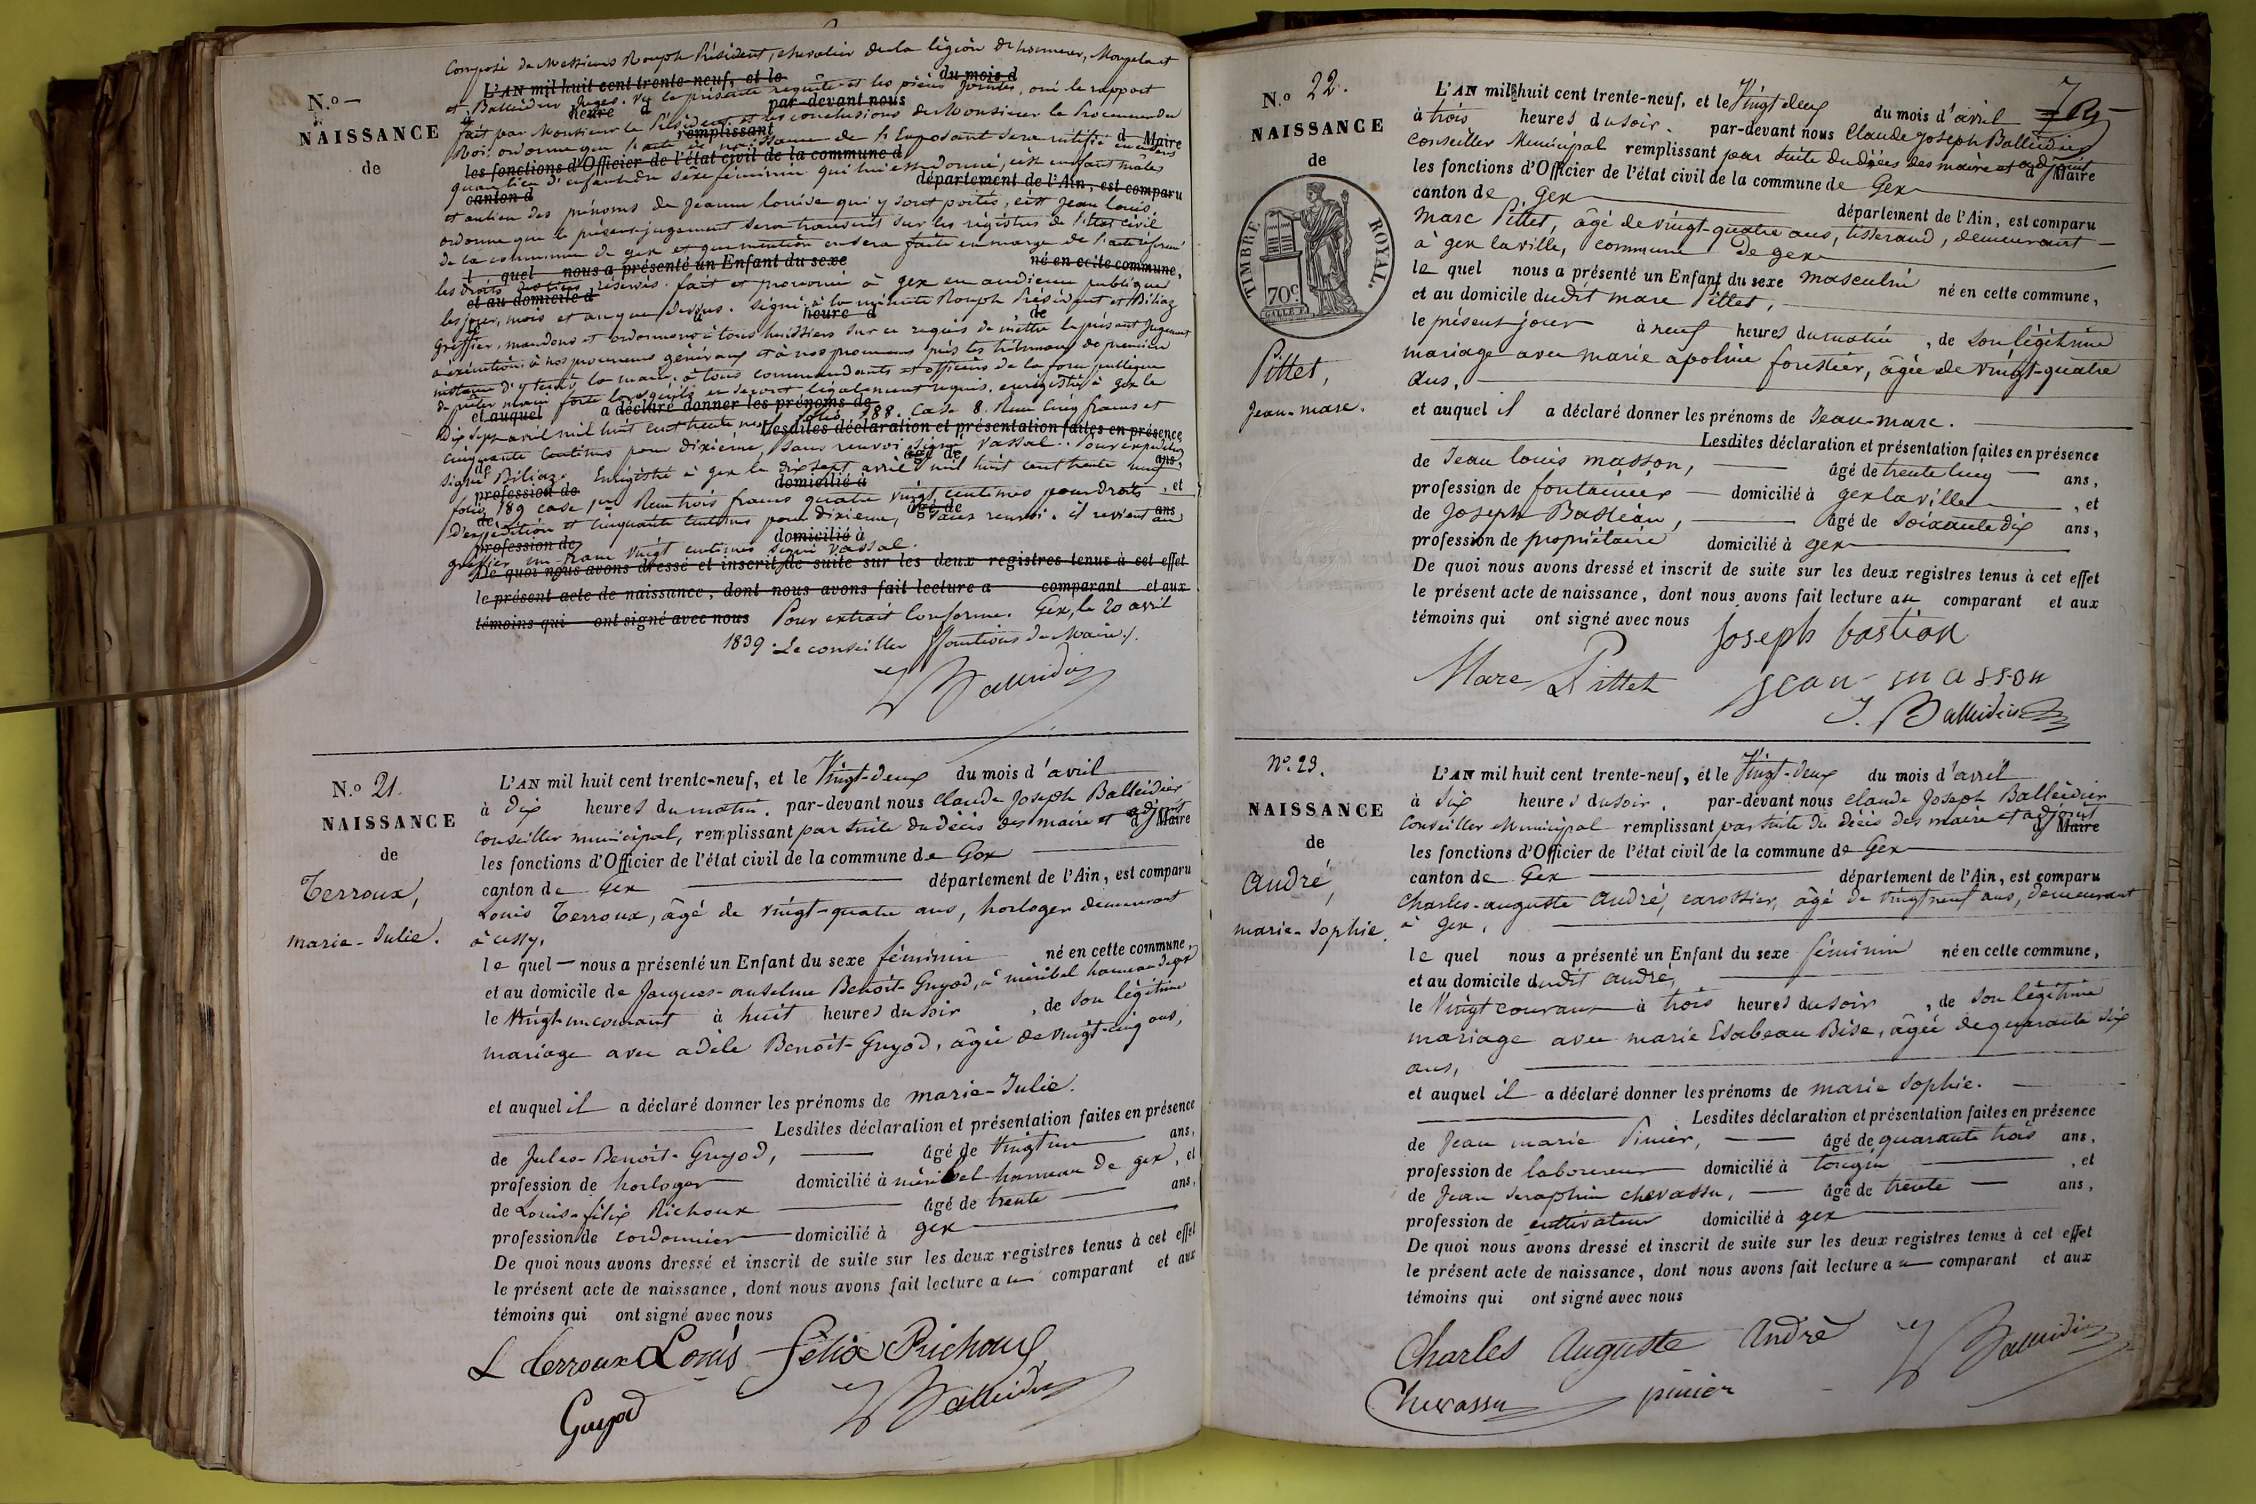 Composé de Messieurs Rouph Président, chevalier de la légion d'honneur, Mougela et
L'AN mil huit cent trente-neuf, et le du mois d
et Balleidier Juges. Vu la présente requête et les pièces jointes, ouï le rapport
N.o —
heure d par-devant nous
fait par Monsieur le Président et les conclusions de Monsieur le Procureur du
NAISSANCE
remplissant d Maire
Roi. ordonne que l'acte de naissance de l'Exposant sera rectifié
de
les fonctions d'Officier de l'état civil de la commune d
qu'au lieu d'enfant du sexe féminin qui lui est donné, c'est enfant mâle
canton d département de l'Ain, est comparu
et au lieu des prénoms de Jeanne louise qui y sont portés, c'est Jean louis
ordonne que le présent jugement sera transcrit sur les régistres de l'Etat civil
de la commune de gex et que mention en sera faite en marge de l'acte réformé
l quel nous a présenté un Enfant du sexe né en cette commune,
les droits des tiers réservés. fait et prononcé à gex en audience publique
et au domicile d
les jour, mois et an que dessus. signé à la minute Rouph Président et Biliaz
heure d de
Greffier. mandons et ordonnons à tous huissiers sur ce requis de mettre le présent Jugement
a exécution, à nos procureurs généraux et à nos procureurs près les tribunaux de première
instance d'y tenir la main, à tous commandants et officiers de la force publique
de prêter main forte lorsqu'ils en seront légalement requis. enregistré à gex le
et auquel a déclaré donner les prénoms de
dix sept avril mil huit cent trente neuf folio 188. Case 8. Reçu Cinq francs et
Lesdites déclaration et présentation faites en présence
cinquante Centimes pour dixième, sans renvoi signé Vassal. Pour expédition
de âgé de ans,
signé Biliaz. Enrégistré à gex le dix sept avril mil huit cent trente neuf
profession de domicilié à , et
folio 189 case 1re Reçu trois francs quatre vingt centimes pour droits
de âgé de ans
d'expédition et Cinquante Centimes pour dixième, sans renvoi. il revient au
profession de domicilié à
greffier un franc vingt centimes signé Vassal.
De quoi nous avons dressé et inscrit de suite sur les deux registres tenus à cet effet
le présent acte de naissance, dont nous avons fait lecture a comparant et aux
témoins qui ont signé avec nous Pour extrait Conforme. Gex, le 20 avril
1839. Le conseiller ffonctions de Maire/.
Balleidier
N.o 21.
NAISSANCE
de
Terroux,
marie-Julie.
L'AN mil huit cent trente-neuf, et le Vingt-deux du mois d'avril
à dix heures du matin. par-devant nous Claude Joseph Balleidier
Conseiller municipal, remplissant par suite du décès des maire et adjoint d Maire
les fonctions d'Officier de l'état civil de la commune de Gex
canton de Gex département de l'Ain, est comparu
Louis Terroux, âgé de vingt-quatre ans, horloger demeurant
à cessy.
le quel — nous a présenté un Enfant du sexe féminin né en cette commune,
et au domicile de Jacques-anselme Benoit-Guyod, à méribel hameau de gex
le Vingt-un courant à huit heures du soir , de son légitime
mariage avec adèle Benoit-Guyod, âgée de vingt-cinq ans,
et auquel il a déclaré donner les prénoms de marie-Julie.
Lesdites déclaration et présentation faites en présence
de Jules-Benoit-Guyod, âgé de Vingt un ans,
profession de horloger domicilié à méribel hameau de gex, et
de Louis-félix Richoux âgé de trente ans,
profession de cordonnier domicilié à gex
De quoi nous avons dressé et inscrit de suite sur les deux registres tenus à cet effet
le présent acte de naissance, dont nous avons fait lecture au comparant et aux
témoins qui ont signé avec nous
L Terroux Louis félix Richoux
Guyod Balleidier
N.o 22.
NAISSANCE
de
TIMBRE ROYAL.
70c
Pittet,
Jean-marc.
L'AN mil huit cent trente-neuf, et le Vingt deux du mois d'avril
à trois heures du soir. par-devant nous Claude Joseph Balleidier
Conseiller Municipal remplissant par suite du décès des maire et adjoint d Maire
les fonctions d'Officier de l'état civil de la commune de Gex
canton de Gex département de l'Ain, est comparu
Marc Pittet, âgé de vingt-quatre ans, tisserand, demeurant
à gex la ville, commune de gex
le quel nous a présenté un Enfant du sexe masculin né en cette commune,
et au domicile dudit marc Pittet,
le présent jour à neuf heures du matin , de son légitime
mariage avec marie apoline forestier, âgée de vingt-quatre
ans,
et auquel il a déclaré donner les prénoms de Jean-marc.
Lesdites déclaration et présentation faites en présence
de Jean louis masson, âgé de trente cinq ans,
profession de fontainier domicilié à gex la ville , et
de Joseph Bastian, âgé de soixante dix ans,
profession de propriétaire domicilié à gex
De quoi nous avons dressé et inscrit de suite sur les deux registres tenus à cet effet
le présent acte de naissance, dont nous avons fait lecture au comparant et aux
témoins qui ont signé avec nous Joseph bastian
Marc Pittet jean masson
J. Balleidier
No. 23.
NAISSANCE
de
André,
marie-Sophie.
L'AN mil huit cent trente-neuf, et le Vingt-deux du mois d'avril
à six heures du soir. par-devant nous Claude Joseph Balleidier
Conseiller Municipal remplissant par suite du décès des maire et adjoint d Maire
les fonctions d'Officier de l'état civil de la commune de Gex
canton de Gex département de l'Ain, est comparu
Charles-auguste André, carossier, âgé de vingt neuf ans, demeurant
à Gex,
le quel nous a présenté un Enfant du sexe féminin né en cette commune,
et au domicile dudit André,
le Vingt courant à trois heures du soir , de son légitime
mariage avec marie Esabeau Bise, âgée de quarante six
ans,
et auquel il a déclaré donner les prénoms de marie Sophie.
Lesdites déclaration et présentation faites en présence
de Jean marie Pinier, âgé de quarante trois ans,
profession de laboureur domicilié à tougin , et
de Jean Seraphin chevassu, âgé de trente ans,
profession de cultivateur domicilié à gex
De quoi nous avons dressé et inscrit de suite sur les deux registres tenus à cet effet
le présent acte de naissance, dont nous avons fait lecture au comparant et aux
témoins qui ont signé avec nous
Charles Auguste André Balleidier
Chevassu pinier